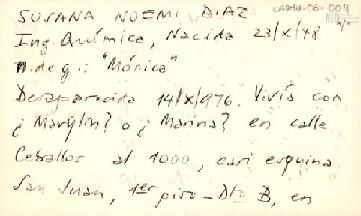 SUSANA NOEMI DIAZ
Ing. Química, Nacida 23/X/48
N. de g.: "Mónica"
Desaparecida 14/X/976. Vivía con
¿Marylin? o ¿Marina? en calle
Ceballos al 1000, casi esquina
San Juan, 1er piso - Dto B, en